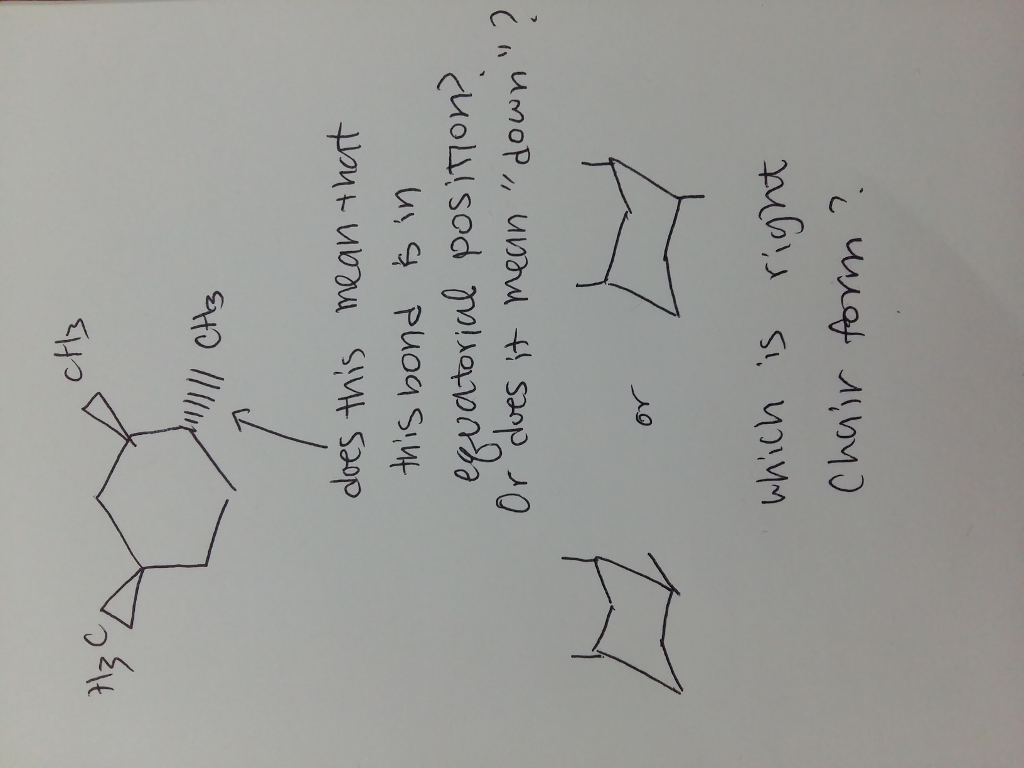 H3C
CH3
CH3
does this mean that
this bond is in
equatorial position?
Or does it mean "down"?
or
which is right
Chair form?